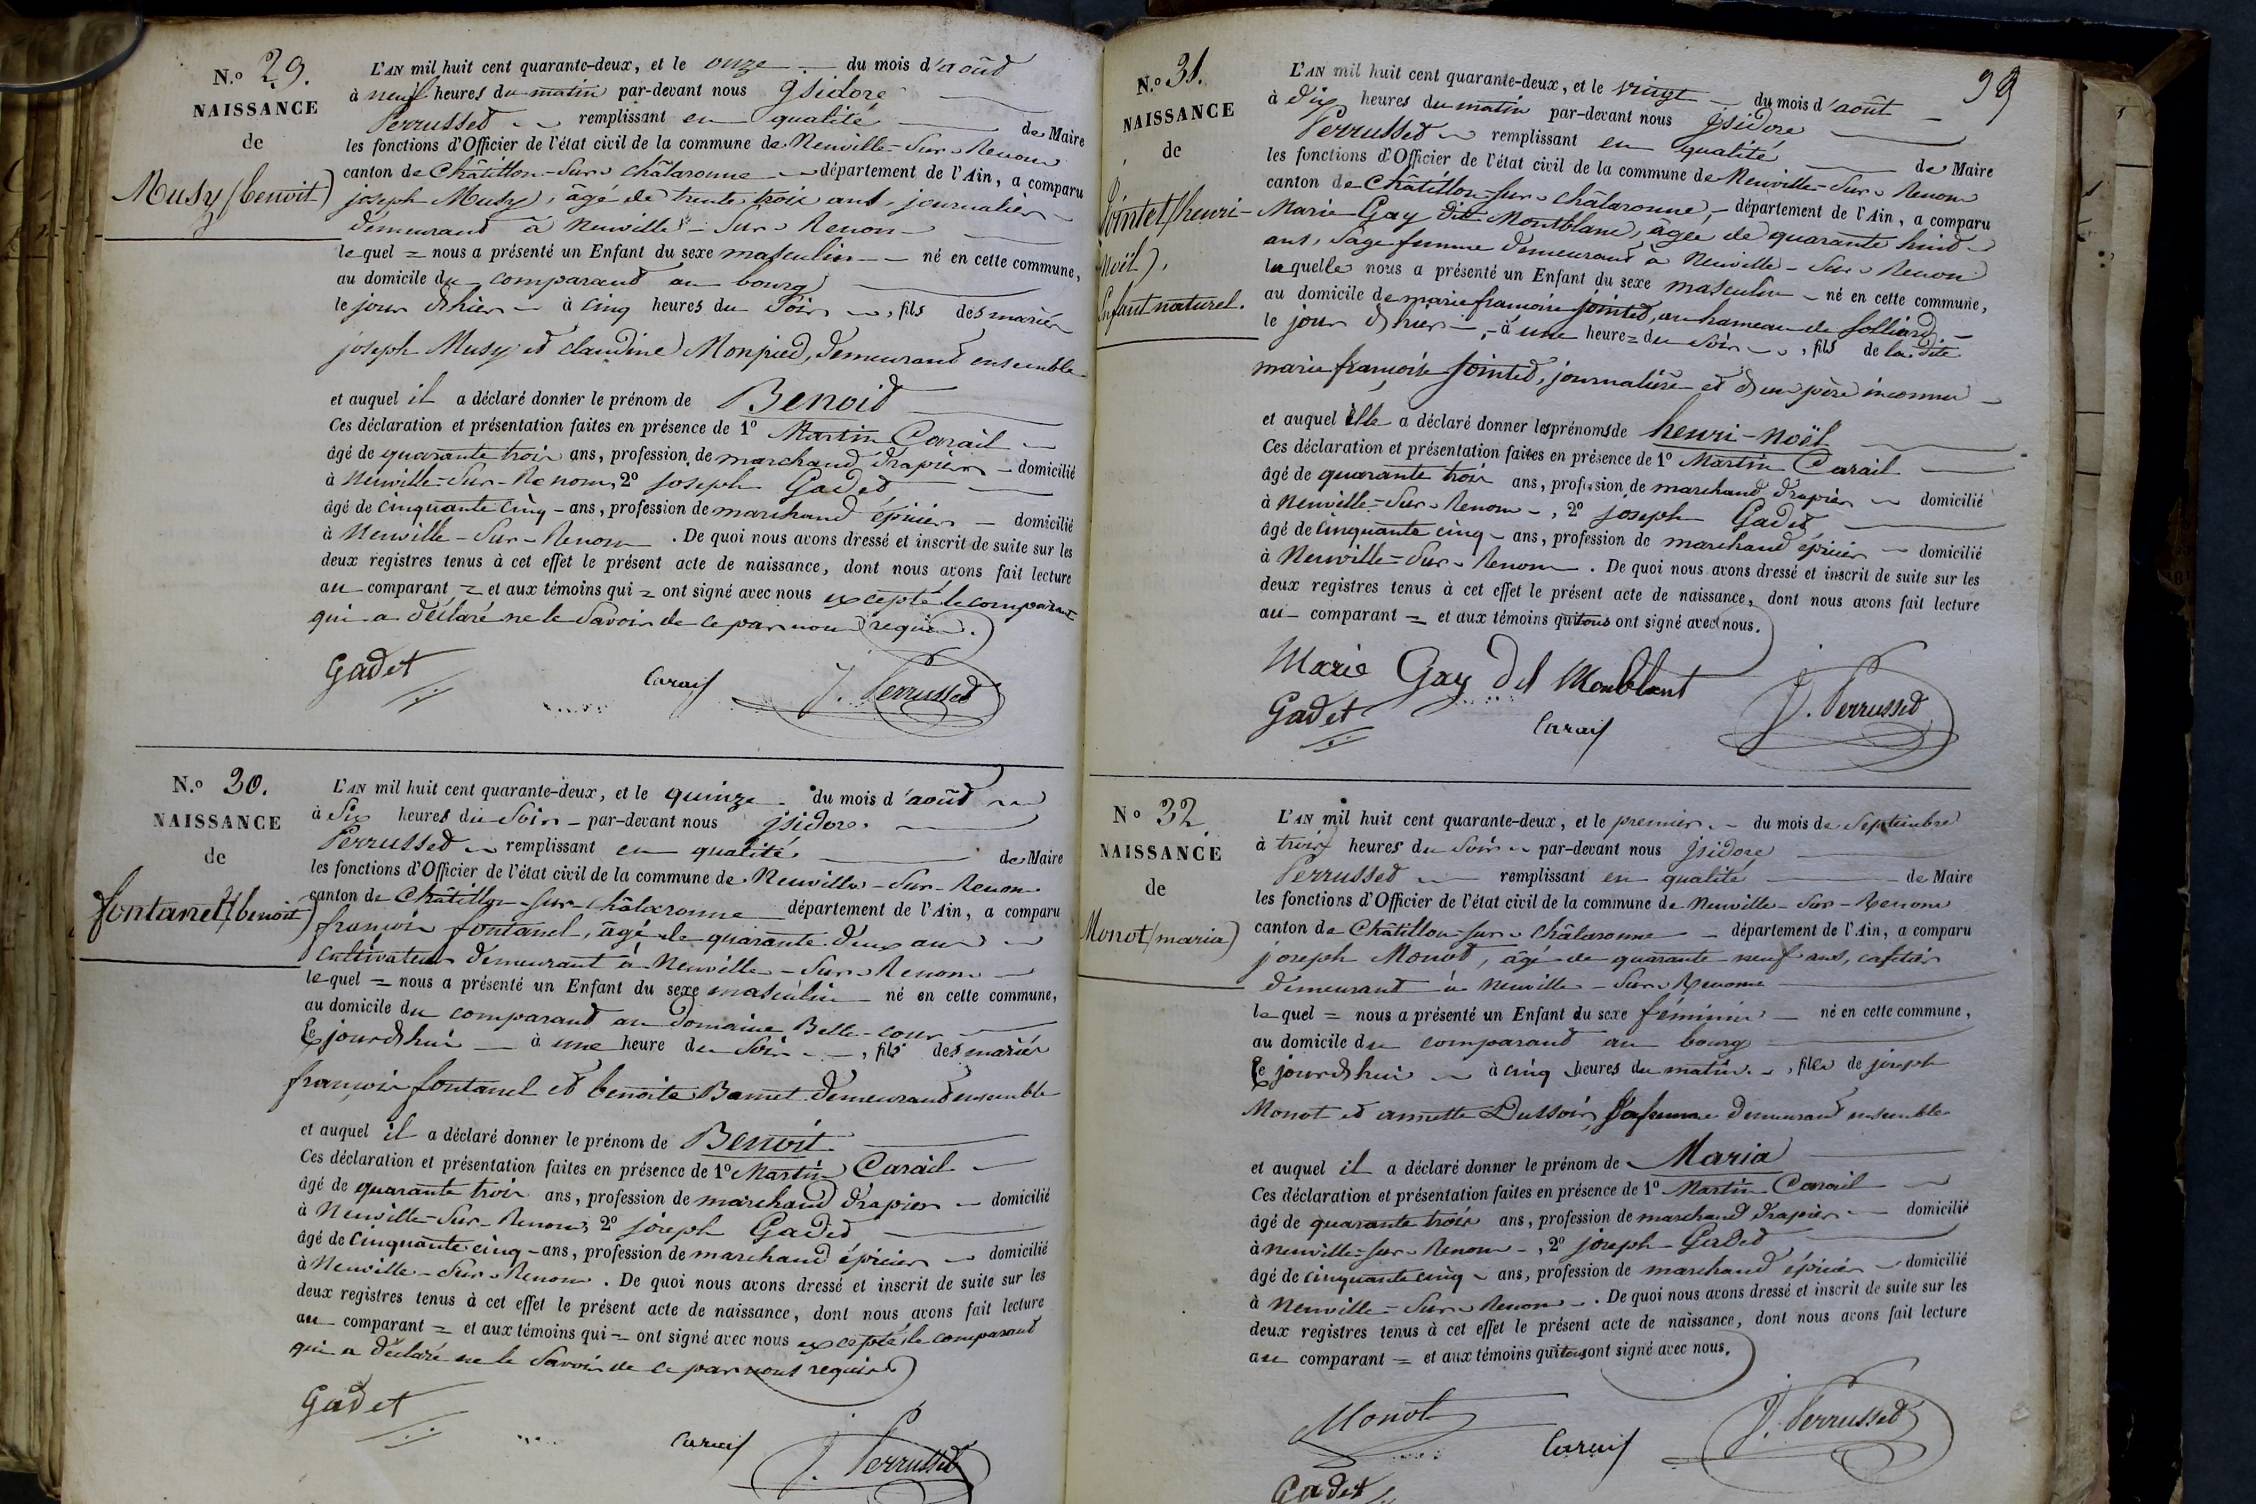 N.o 29.
NAISSANCE
de
Musy (benoit)
L'AN mil huit cent quarante-deux, et le onze du mois d'août
à neuf heures du matin par-devant nous Isidore
Perrussed remplissant en qualité de Maire
les fonctions d'Officier de l'état civil de la commune de Neuville-Sur-Renom
canton de Châtillon-Sur-châlaronne département de l'Ain, a comparu
joseph Musy, âgé de trente trois ans, journalier
demeurant à Neuville-Sur-Renom
lequel = nous a présenté un Enfant du sexe masculin né en cette commune,
au domicile du comparand au bourg
le jour d'hier à cinq heures du Soir, fils des mariés
joseph Musy et claudine Monpied, demeurant ensemble
et auquel il a déclaré donner le prénom de Benoit
Ces déclaration et présentation faites en présence de 1o Martin Carail
âgé de quarante trois ans, profession de marchand drapier domicilié
à Neuville-Sur-Renom, 2o joseph Gadet
âgé de cinquante cinq ans, profession de marchand épicier domicilié
à Neuville-Sur-Renom. De quoi nous avons dressé et inscrit de suite sur les
deux registres tenus à cet effet le présent acte de naissance, dont nous avons fait lecture
au comparant = et aux témoins qui = ont signé avec nous excepté le comparant
qui a déclaré ne le Savoir de ce par nous requis.
Gadet Carail J. Perrussed
N.o 30.
NAISSANCE
de
fontanel (benoit)
L'AN mil huit cent quarante-deux, et le quinze du mois d'août
à Six heures du Soir par-devant nous jsidore
Perrussed remplissant en qualité de Maire
les fonctions d'Officier de l'état civil de la commune de Neuville-Sur-Renom
canton de Châtillon-sur-châlaronne département de l'Ain, a comparu
françois fontanel, âgé de quarante deux ans
Cultivateur demeurant à Neuville-Sur-Renom
lequel = nous a présenté un Enfant du sexe masculin né en cette commune,
au domicile du comparand au domaine Belle-cour
Ce jourd'hui à une heure du Soir, fils des mariés
françois fontanel et benoite Bamet demeurand ensemble
et auquel il a déclaré donner le prénom de Benoit
Ces déclaration et présentation faites en présence de 1o Martin Carail
âgé de quarante trois ans, profession de marchand drapier domicilié
à Neuville-Sur-Renom, 2o joseph Gadet
âgé de cinquante cinq ans, profession de marchand épicier domicilié
à Neuville-Sur-Renom. De quoi nous avons dressé et inscrit de suite sur les
deux registres tenus à cet effet le présent acte de naissance, dont nous avons fait lecture
au comparant = et aux témoins qui = ont signé avec nous excepté le comparant
qui a déclaré ne le Savoir de ce par nous requis
Gadet Carail J. Perrussed
99
N.o 31.
NAISSANCE
de
Jointet (henri-
noël).
Enfant naturel.
L'AN mil huit cent quarante-deux, et le vingt du mois d'août
à dix heures du matin par-devant nous Jsidore
Perrussed remplissant en qualité de Maire
les fonctions d'Officier de l'état civil de la commune de Neuville-Sur-Renom
canton de Châtillon-sur-châlaronne, département de l'Ain, a comparu
Marie Gay dit Montblanc, âgée de quarante huit
ans, Sage femme demeurant à Neuville-Sur-Renom
laquelle nous a présenté un Enfant du sexe masculin né en cette commune,
au domicile de marie françoise jointed, au hameau de folliard,
le jour d'hier, à une heure = du Soir, fils de la dite
marie françoise jointed, journalière et d'un père inconnu
et auquel elle a déclaré donner les prénoms de henri-noël
Ces déclaration et présentation faites en présence de 1o Martin Carail
âgé de quarante trois ans, profession de marchand drapier domicilié
à Neuville-Sur-Renom, 2o joseph Gadet
âgé de cinquante cinq ans, profession de marchand épicier domicilié
à Neuville-Sur-Renom. De quoi nous avons dressé et inscrit de suite sur les
deux registres tenus à cet effet le présent acte de naissance, dont nous avons fait lecture
au comparant = et aux témoins qui tous ont signé avec nous.
Marie Gay dit Monblant
Gadet Carail J. Perrussed
No 32
NAISSANCE
de
Monot (maria)
L'AN mil huit cent quarante-deux, et le premier du mois de Septembre
à trois heures du Soir par-devant nous Jsidore
Perrussed remplissant en qualité de Maire
les fonctions d'Officier de l'état civil de la commune de Neuville-Sur-Renom
canton de Châtillon-sur-châlaronne département de l'Ain, a comparu
joseph Monot, âgé de quarante neuf ans, cafetier
demeurant à Neuville-Sur-Renom
lequel = nous a présenté un Enfant du sexe féminin né en cette commune,
au domicile du comparand au bourg
Ce jourd'hui à cinq heures du matin, fille de joseph
Monot et annette Dussoir, Sa femme demeurant ensemble
et auquel il a déclaré donner le prénom de Maria
Ces déclaration et présentation faites en présence de 1o Martin Carail
âgé de quarante trois ans, profession de marchand drapier domicilié
à Neuville-sur-Renom, 2o joseph Gadet
âgé de cinquante cinq ans, profession de marchand épicier domicilié
à Neuville-Sur-Renom. De quoi nous avons dressé et inscrit de suite sur les
deux registres tenus à cet effet le présent acte de naissance, dont nous avons fait lecture
au comparant = et aux témoins qui tous ont signé avec nous.
Monot Carail J. Perrussed
Gadet